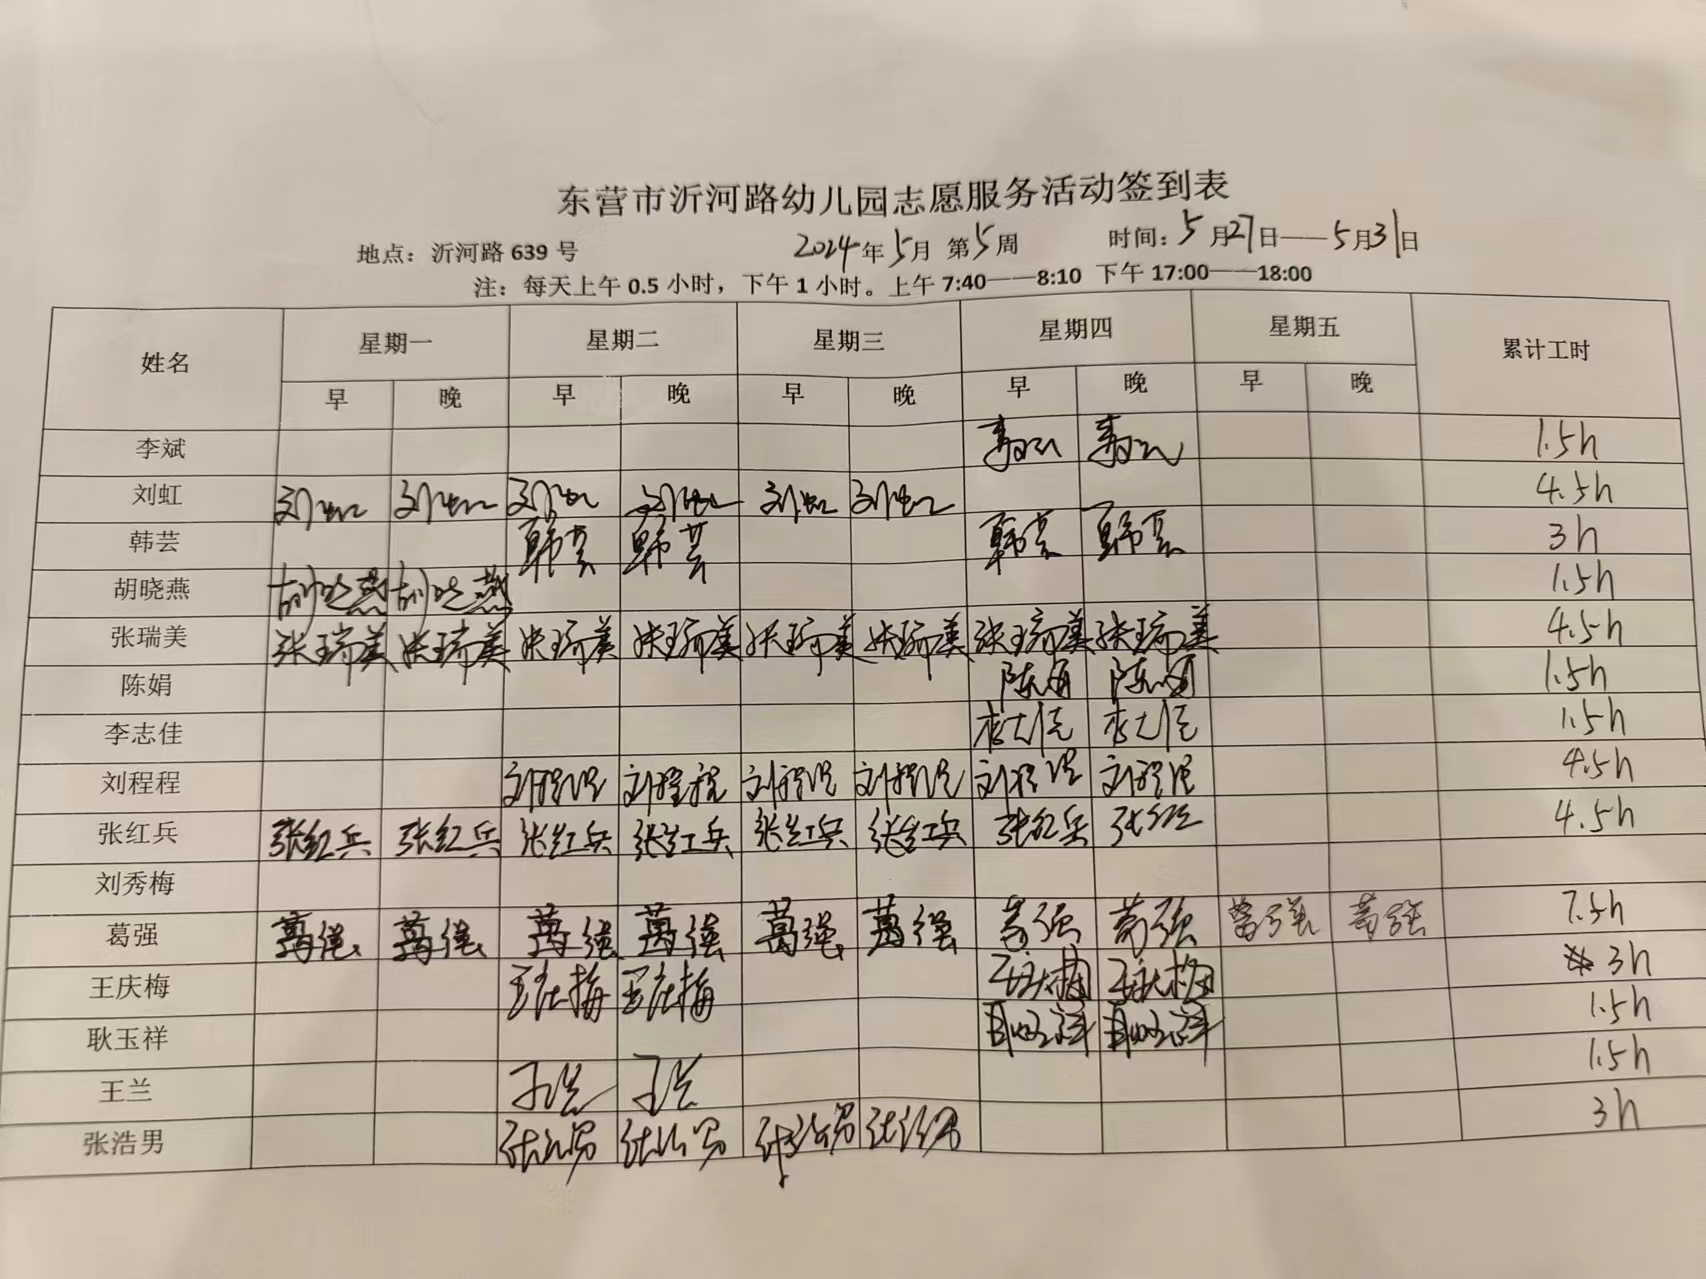 东营市沂河路幼儿园志愿服务活动签到表
地点：沂河路 639 号 2024年 5月 第5周 时间：5月27日——5月31日
注：每天上午 0.5 小时，下午 1 小时。上午 7:40——8:10 下午 17:00——18:00
姓名 星期一 星期二 星期三 星期四 星期五 累计工时
早 晚 早 晚 早 晚 早 晚 早 晚
李斌 1.5h
刘虹 刘虹 刘虹 刘虹 刘虹 刘虹 刘虹 4.5h
韩芸 韩芸 韩芸 韩芸 韩芸 3h
胡晓燕 胡晓燕 胡晓燕 1.5h
张瑞美 张瑞美 张瑞美 张瑞美 张瑞美 张瑞美 张瑞美 张瑞美 张瑞美 4.5h
陈娟 陈娟 陈娟 1.5h
李志佳 李志佳 李志佳 1.5h
刘程程 刘程程 刘程程 刘程程 刘程程 刘程程 刘程程 4.5h
张红兵 张红兵 张红兵 张红兵 张红兵 张红兵 张红兵 张红兵 张红兵 4.5h
刘秀梅
葛强 葛强 葛强 葛强 葛强 葛强 葛强 葛强 葛强 葛强 葛强 7.5h
王庆梅 王庆梅 王庆梅 王庆梅 王庆梅 3h
耿玉祥 耿玉祥 耿玉祥 1.5h
王兰 王兰 王兰 1.5h
张浩男 张浩男 张浩男 张浩男 张浩男 3h